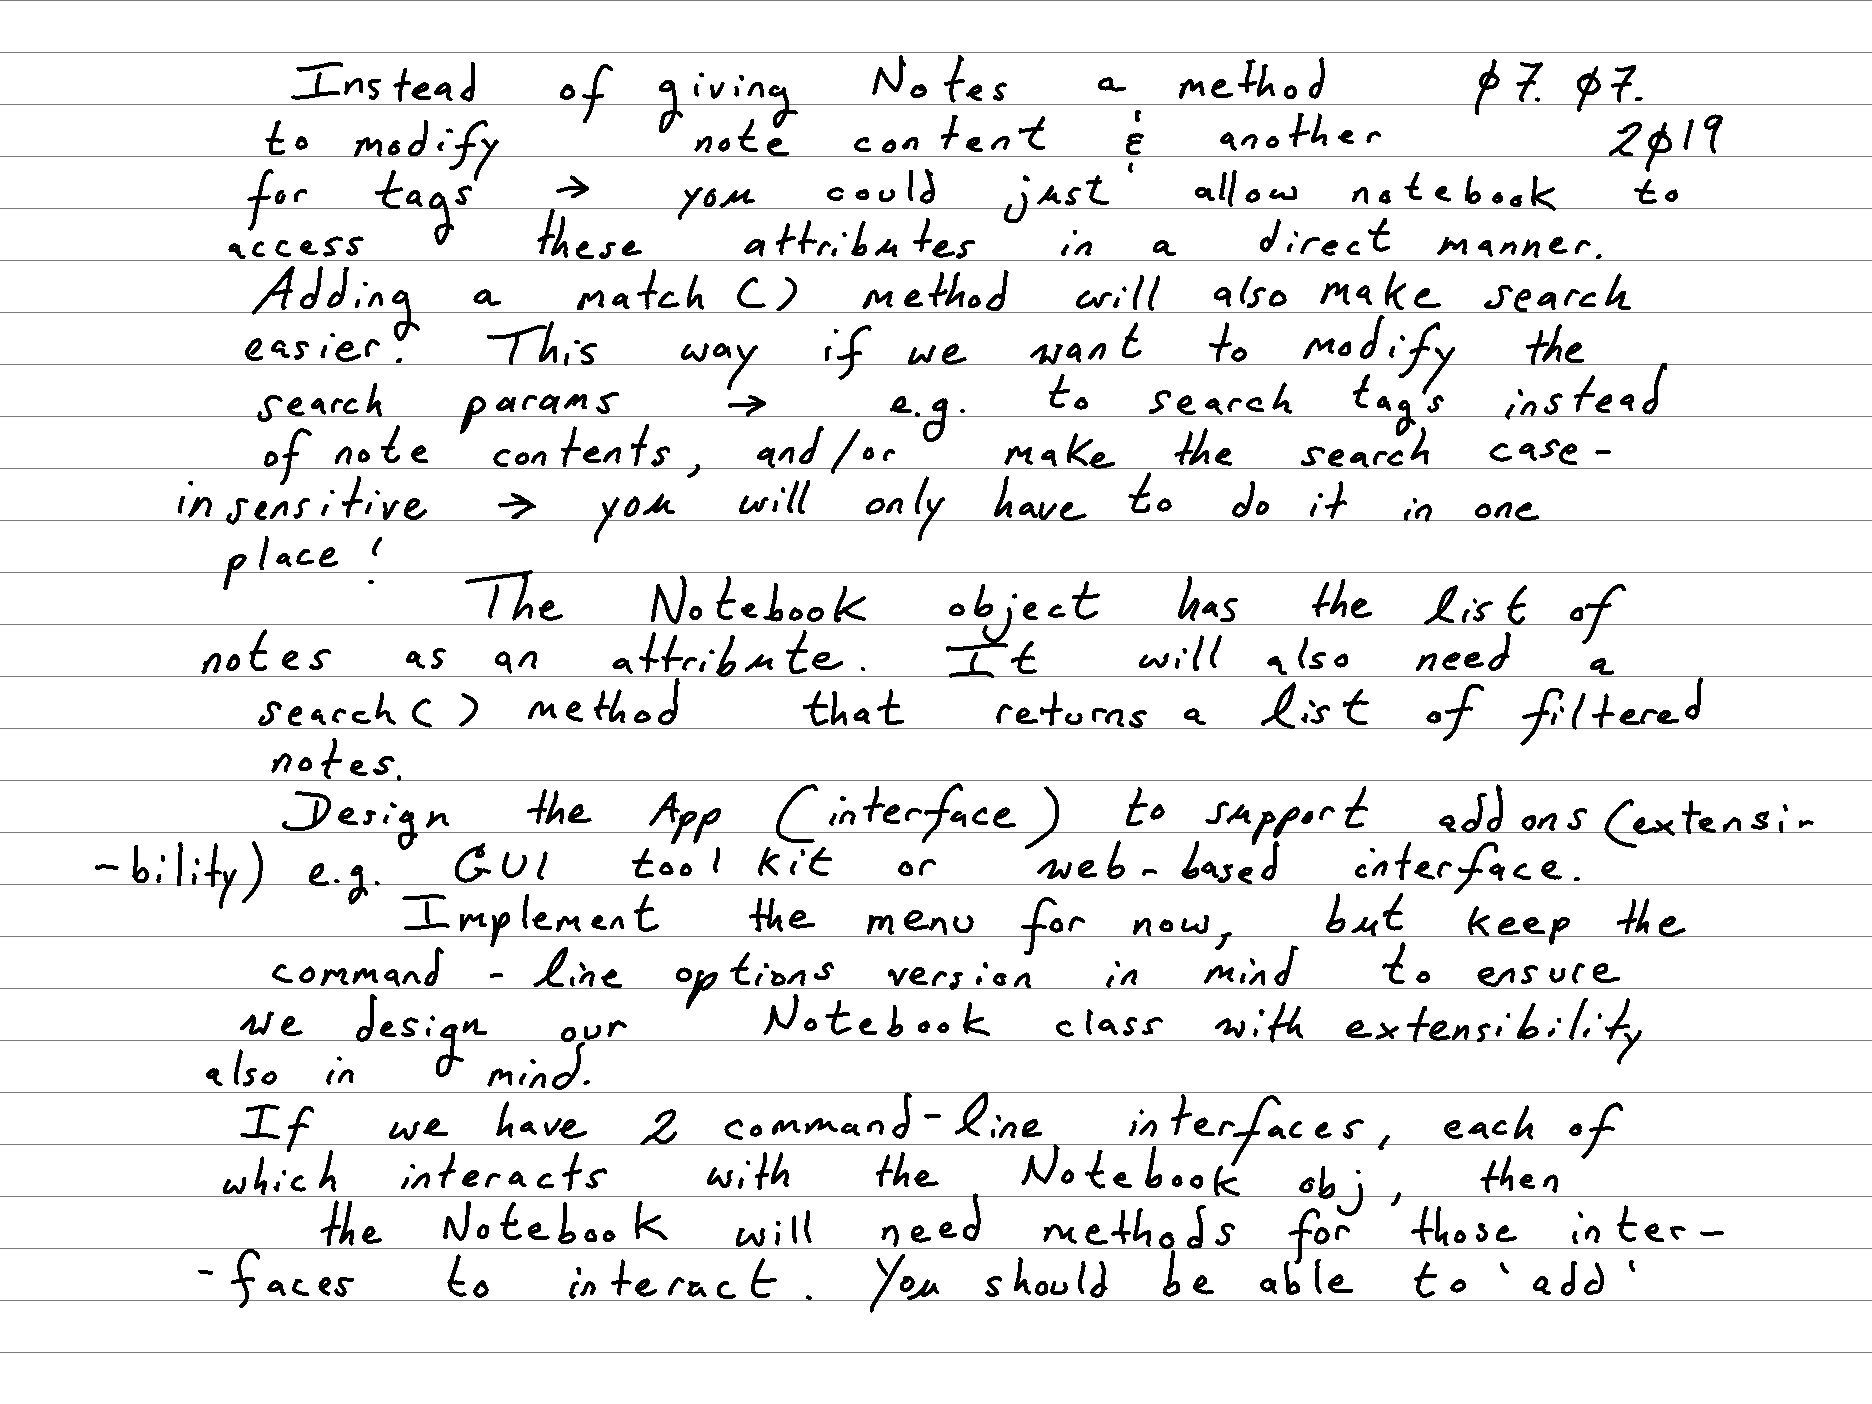 Instead of giving Notes a method ø7. ø7.
to modify note content & another 2ø19
for tags → you could just allow notebook to
access these attributes in a direct manner.
Adding a match() method will also make search
easier. This way if we want to modify the
search params → e.g. to search tags instead
of note contents, and/or make the search case-
insensitive → you will only have to do it in one
place!
The Notebook object has the list of
notes as an attribute. It will also need a
search() method that returns a list of filtered
notes.
Design the App (interface) to support addons (extensi-
-bility) e.g. GUI toolkit or web-based interface.
Implement the menu for now, but keep the
command-line options version in mind to ensure
we design our Notebook class with extensibility
also in mind.
If we have 2 command-line interfaces, each of
which interacts with the Notebook obj, then
the Notebook will need methods for those inter-
-faces to interact. You should be able to 'add'